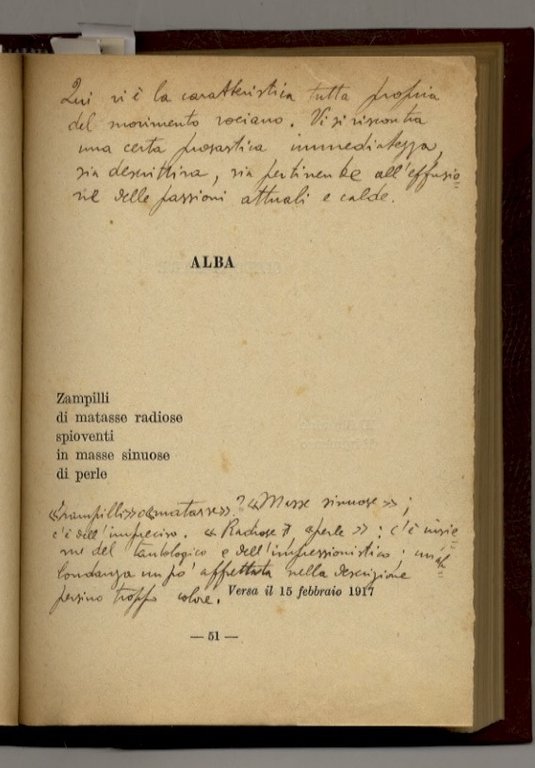 Qui vi è la caratteristica tutta propria
del movimento vociano. Vi si riscontra
una certa prosastica immediatezza,
sia descrittiva, sia pertinente all'effusio=
ne delle passioni attuali e calde.
ALBA
Zampilli
di matasse radiose
spioventi
in masse sinuose
di perle
«Zampilli» o «matasse»? «Masse sinuose»;
c'è dell'impreciso. «Radiose» «perle»: c'è insie=
me del tautologico e dell'impressionistico:
un po' affrettata nella descrizione
persino troppo colore.
Versa il 15 febbraio 1917
— 51 —